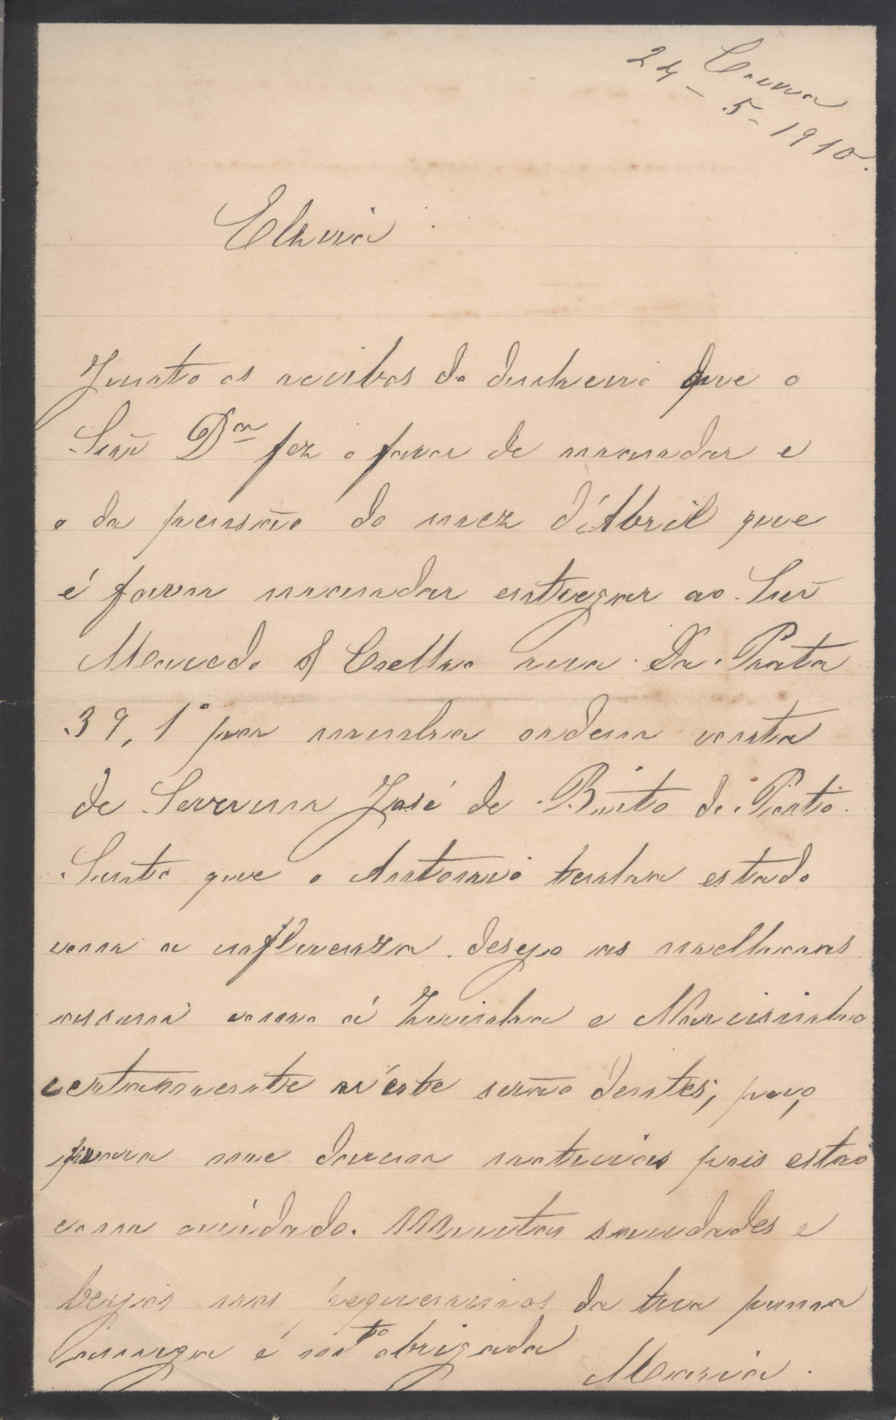 24 - 5 - 1910.
Elvira
Junto os recibos do dinheiro que o
Senr Dor fez o favor de mandar e
o da pensão do mez d'Abril que
é favor mandar entregar ao Senr
Macedo & Coelho rua da Prata
39, 1º por minha ordem conta
de José de Brito de Porto
Sinto que o Antonio tenha estado
com a influenza. desejo as melhoras
assim como á Zuinha e Narcisinho
certamente n'este serão dentes, peço,
para me darem noticias pois estao
com cuidado. Muitas saudades e
beijos aos pequeninos da tua prima
amiga é mto obrigada
Maria.